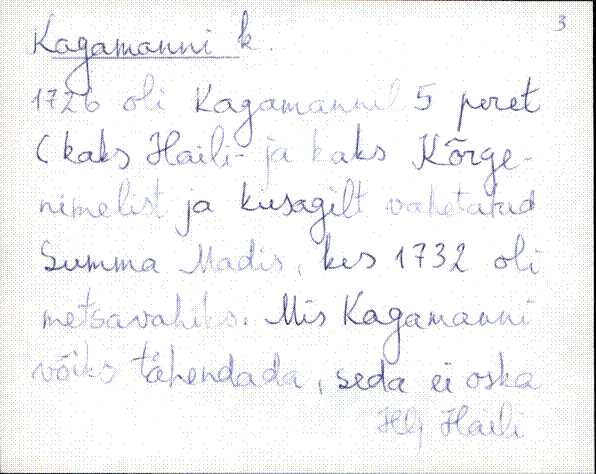 3
Kagamanni k.
1726 oli Kagamannil 5 peret
(kaks Haili- ja kaks Kõrge-
nimelist ja kusagilt vahetatud
Summa Madis, kes 1732 oli
metsavahiks. Mis Kagamanni
võiks tähendada, seda ei oska
Haili